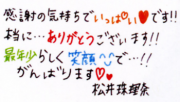 感謝の気持ちでいっぱい♡♥です!!
本当に…ありがとうございます!!
最年少らしく笑顔で…!!
がんばります♡
松井珠理奈